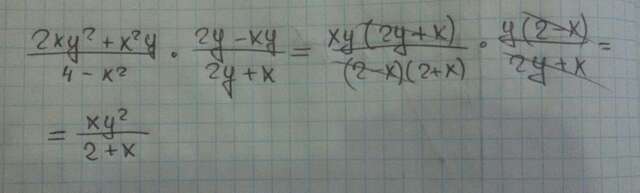 (2xy² + x²y)/(4 - x²) · (2y - xy)/(2y + x) = (xy(2y + x))/((2-x)(2+x)) · (y(2-x))/(2y + x) =
= (xy²)/(2 + x)